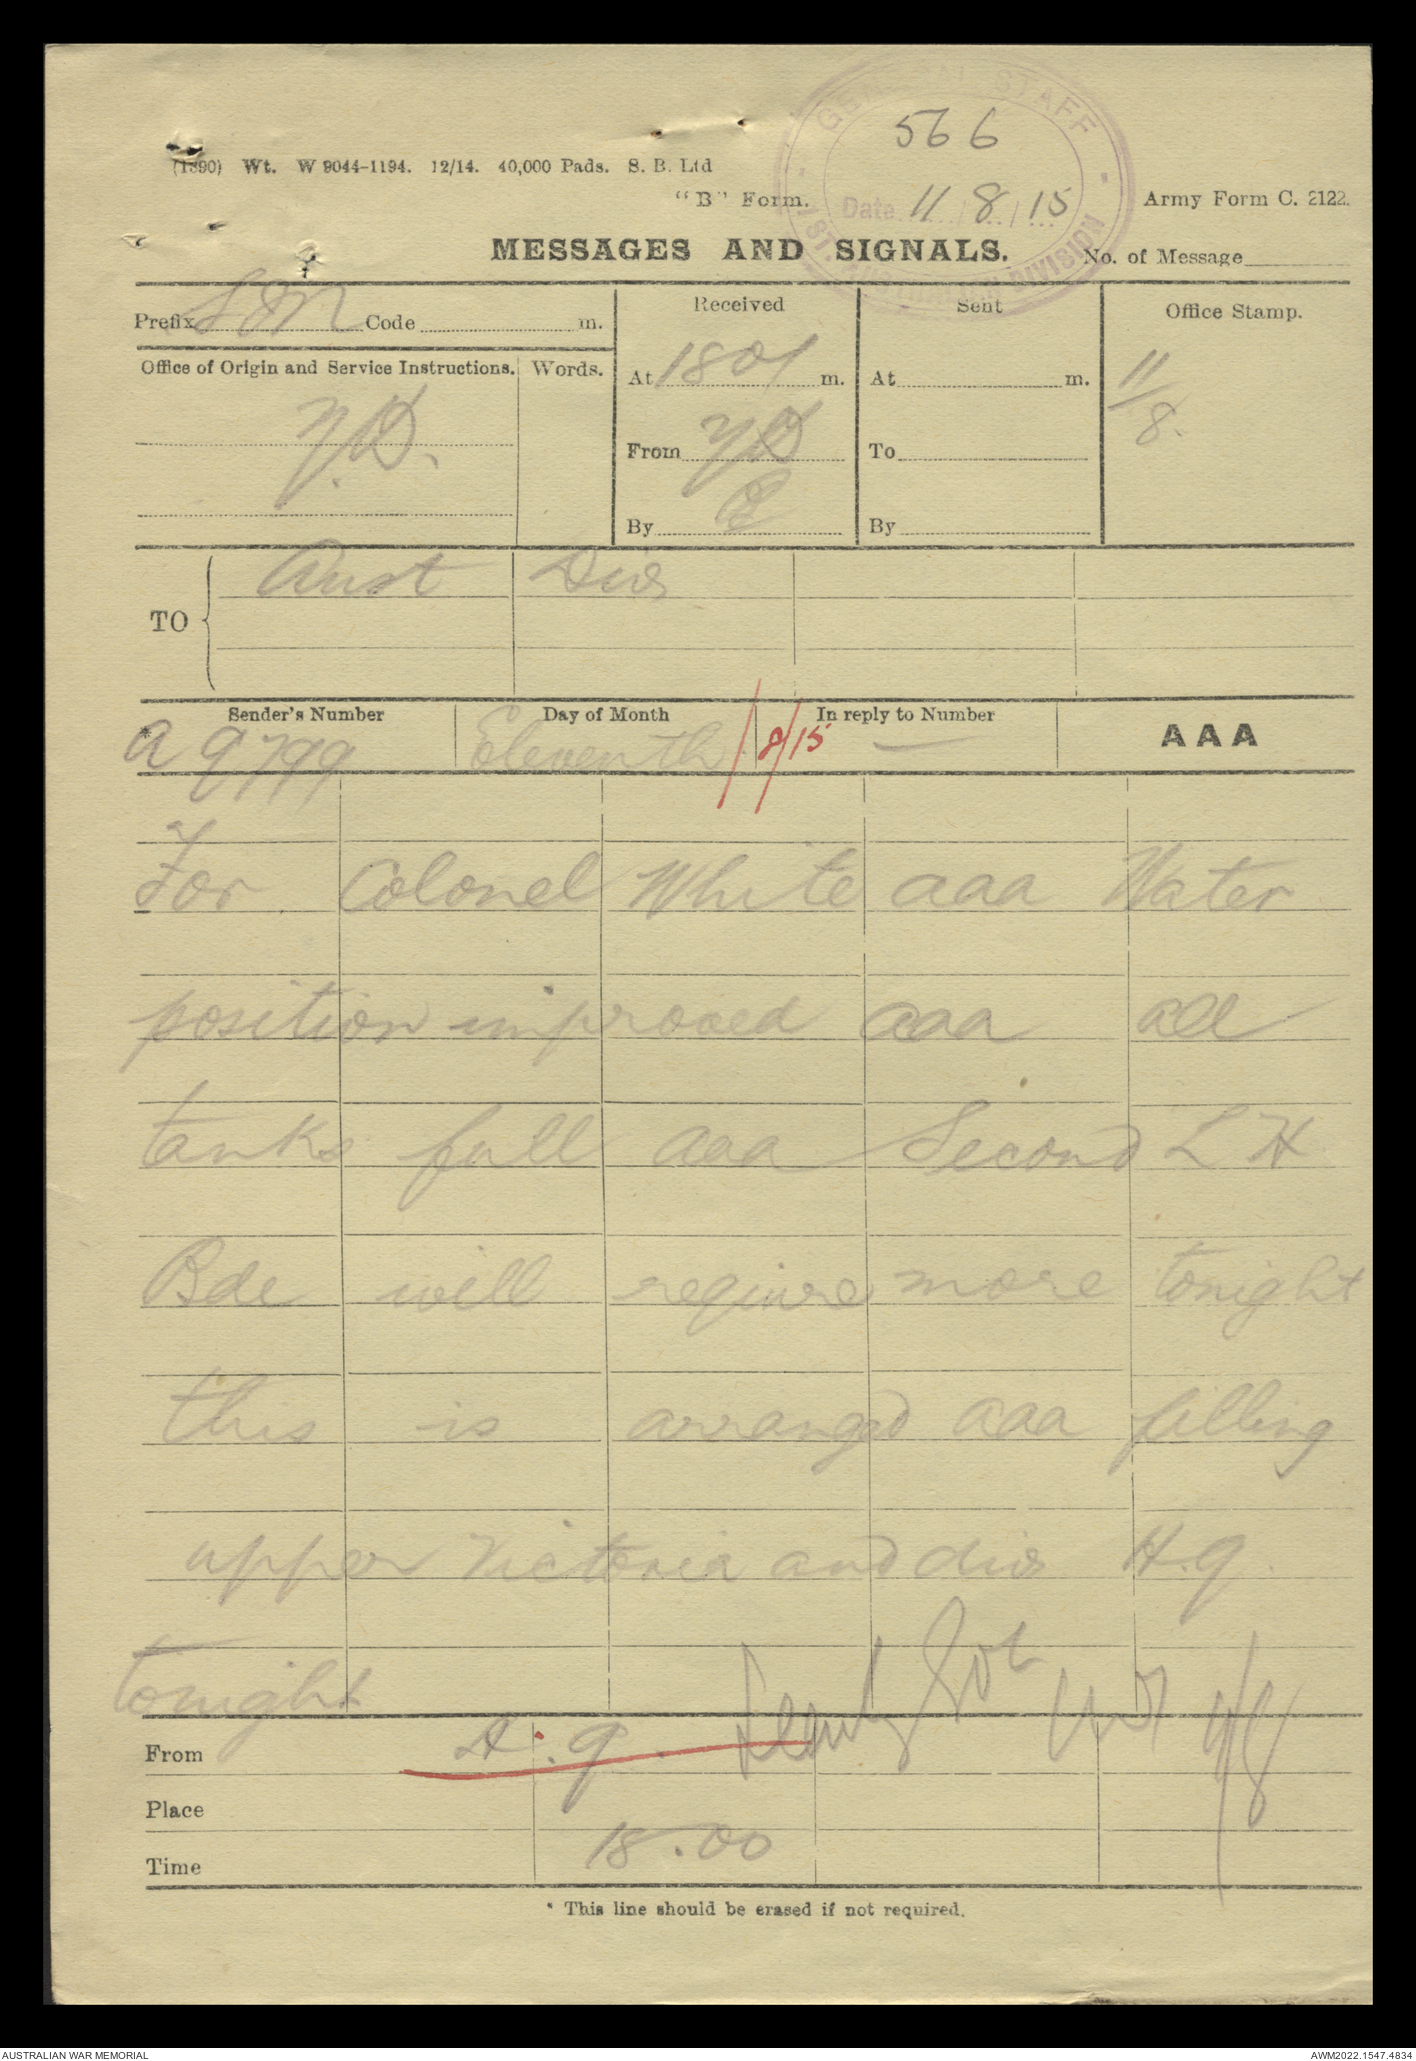 GENERAL STAFF
566
Date 11/8/15
1ST. AUSTRALIAN DIVISION
(1890) Wt. W 9044-1194. 12/14. 40,000 Pads. S. B. Ltd
"B" Form.
Army Form C. 2122.
MESSAGES AND SIGNALS.
No. of Message
Prefix SM Code m.
Received
Sent
Office Stamp.
Office of Origin and Service Instructions.
Words.
At 1801 m.
At m.
11/8.
Y.D.
From YD
To
By
By
TO
Aust Div
Sender's Number
Day of Month
In reply to Number
AAA
* A 9799
Eleventh
/8/15
—
For Colonel White aaa Water
position improved aaa all
tanks full aaa Second L H
Bde will require more tonight
this is arranged aaa filling
upper Victoria and div H.Q.
tonight
From
A.Q.
11/8
Place
Time
18.00
* This line should be erased if not required.
AUSTRALIAN WAR MEMORIAL
AWM2022.1547.4834